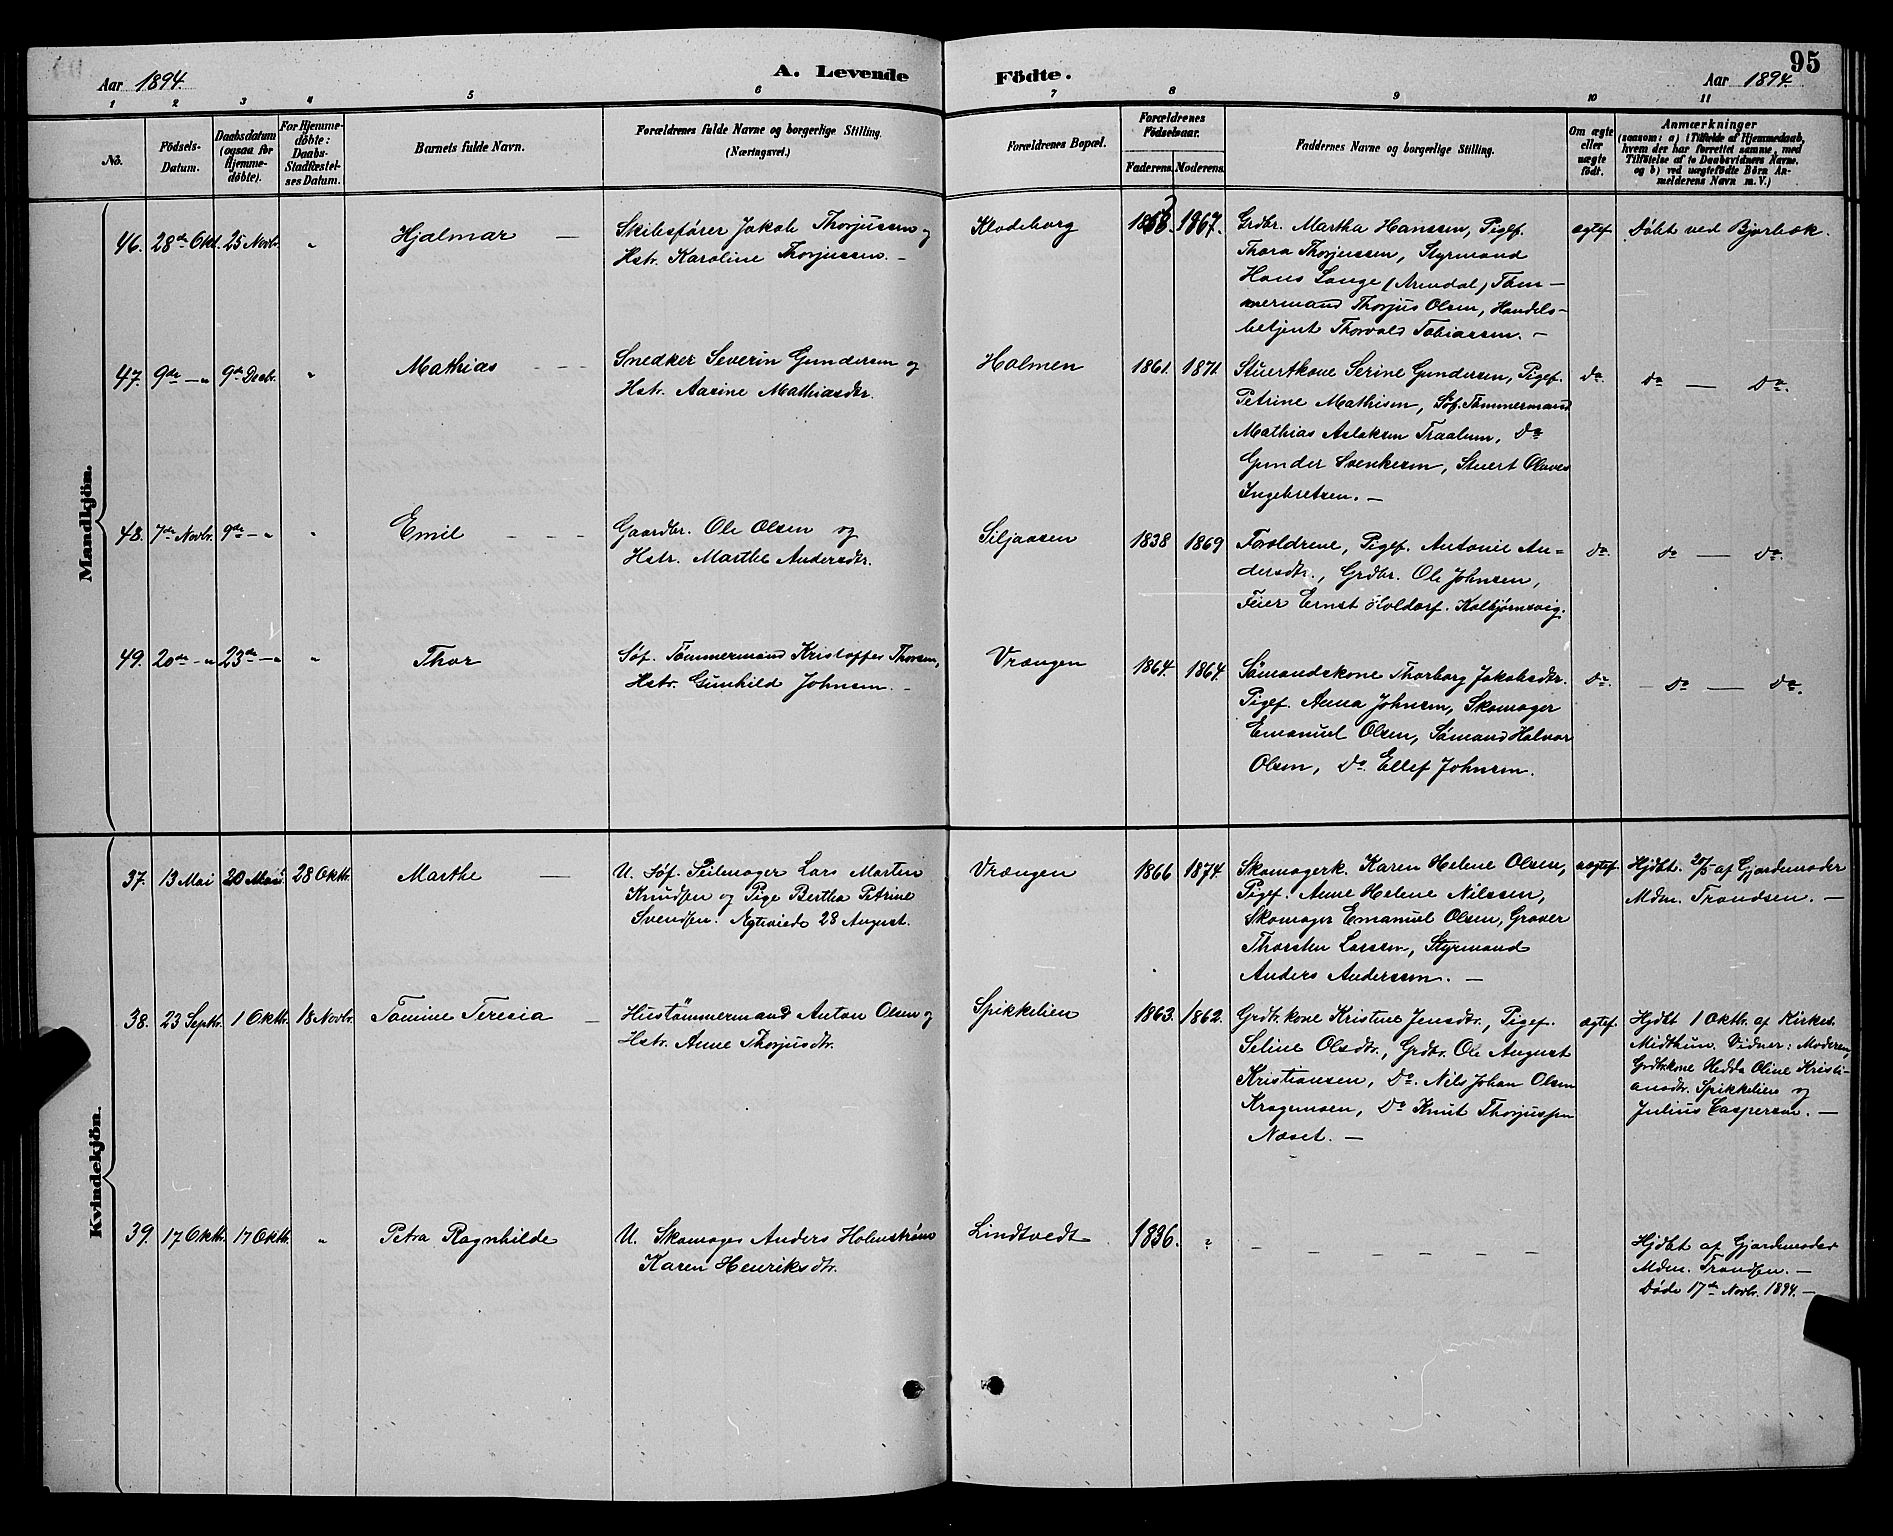 Aar 1894.
A. Levende Födte.
Aar 1894.
95
1 2 3 4 5 6 7 8 9 10 11
No.
Födsels-
Datum.
Daabsdatum
(ogsaa for
Hjemme-
døbte).
For Hjemme-
døbte:
Daabs-
Stadfæstel-
ses Datum.
Barnets fulde Navn.
Forældrenes fulde Navne og borgerlige Stilling.
(Næringsvei.)
Forældrenes Bopæl.
Forældrenes
Fødselsaar.
Faderens. Moderens.
Faddernes Navne og borgerlige Stilling.
Om ægte
eller
uægte
født.
Anmærkninger
(saasom: a) i Tilfælde af Hjemmedaab,
hvem der har forrettet samme, med
Tilföielse af to Daabsvidners Navne.
og b) ved uægtefødte Börn An-
melderens Navn m. V.)
Mandkjön.
46. 28de Okt. 25 Novbr. " Hjalmar —
Skibsfører Jakob Thorjussen og
Hstr. Karoline Thorjussen. –
Klodeborg
1863. 1867.
Grdbr. Martha Hanssen, Pigef.
Thora Thorjussen, Styrmand
Hans Lange (Arendal) Tøm-
mermand Thorjus Olsen, Handels-
betjent Thorvald Tobiassen. –
ægtef.
Døbt ved Bjorbæk.
47. 9de — " 9de Decbr. " Mathias - - -
Snedker Severin Gundersen og
Hstr. Aasine Mathiasdtr.
Holmen
1861. 1871.
Stuertkone Serine Gundersen, Pigef.
Petrine Mathisen, Søf. Tømmermand
Mathias Aslaksen Traalum, Do
Gunder Svenkesen, Stuert Olaves
Ingebretsen. —
do.
do — do.
48. 7de Novbr. 9de — " " Emil - - -
Gaardbr. Ole Olsen og
Hstr. Marthe Andersdtr.
Siljaasen
1838 1869
Forældrene, Pigef. Antonie An-
dersdtr., Grdbr. Ole Johnsen,
Feier Ernst Holdorf. Kolbjørnsvig.
do.
do — do.
49. 20de — " 23de — " " Thor
Søf. Tømmermand Kristoffer Thorsen,
Hstr. Gunhild Johnsen. –
Vrængen
1864. 1864.
Sömandskone Thorborg Jakobsdtr.
Pigef. Anna Johnsen, Skomager
Emanuel Olsen, Sømand Halvor
Olsen, Do. Ellef Johnsen.
do.
– do — do.
Kvindekjön.
37. 13 Mai 20 Mai 28 Oktbr. Marthe —
U. Søf. Seilmager Lars Martin
Knudsen og Pige Bertha Petrine
Svendsen. Ægteviede 28 August.
Vrængen
1866 1874
Skomagerk. Karen Helene Olsen,
Pigef. Anne Helene Nilssen,
Skomager Emanuel Olsen, Graver
Thorsten Larssen, Styrmand
Anders Anderssen. —
uægtef.
Hjdbt. 20/5 af Gjordemoder
Mdm. Trondsen. —
38. 23 Septbr. 1 Oktbr. 18 Novbr. Tomine Teresia –
Hustømmermand Anton Olsen og
Hstr. Anne Thorjusdtr.
Spikkelien
1863. 1862.
Grdbr.kone Kristine Jensdtr., Pigef.
Seline Olsdtr., Grdbr. Ole August
Kristiansen, Do. Nils Johan Olsen
Kragemoen, Do Knut Thorjussen
Næset. —
ægtef.
Hjdbt 1 Oktbr. af Kirkes.
Midthun. Vidner: Moderen,
Grdbr.kone Hedda Oline Kristi-
ansdtr. Spikkelien og
Julius Caspersen. —
39. 17 Oktbr. 17 Oktbr. " Petra Ragnhilde
U. Skomager Anders Holmstrøm
Karen Henriksdtr.
Lindtvedt
1836. ?
– – – – – – –
Hjdbt af Gjordemoder
Mdm. Trondsen. —
Døde 17de Novbr. 1894. —